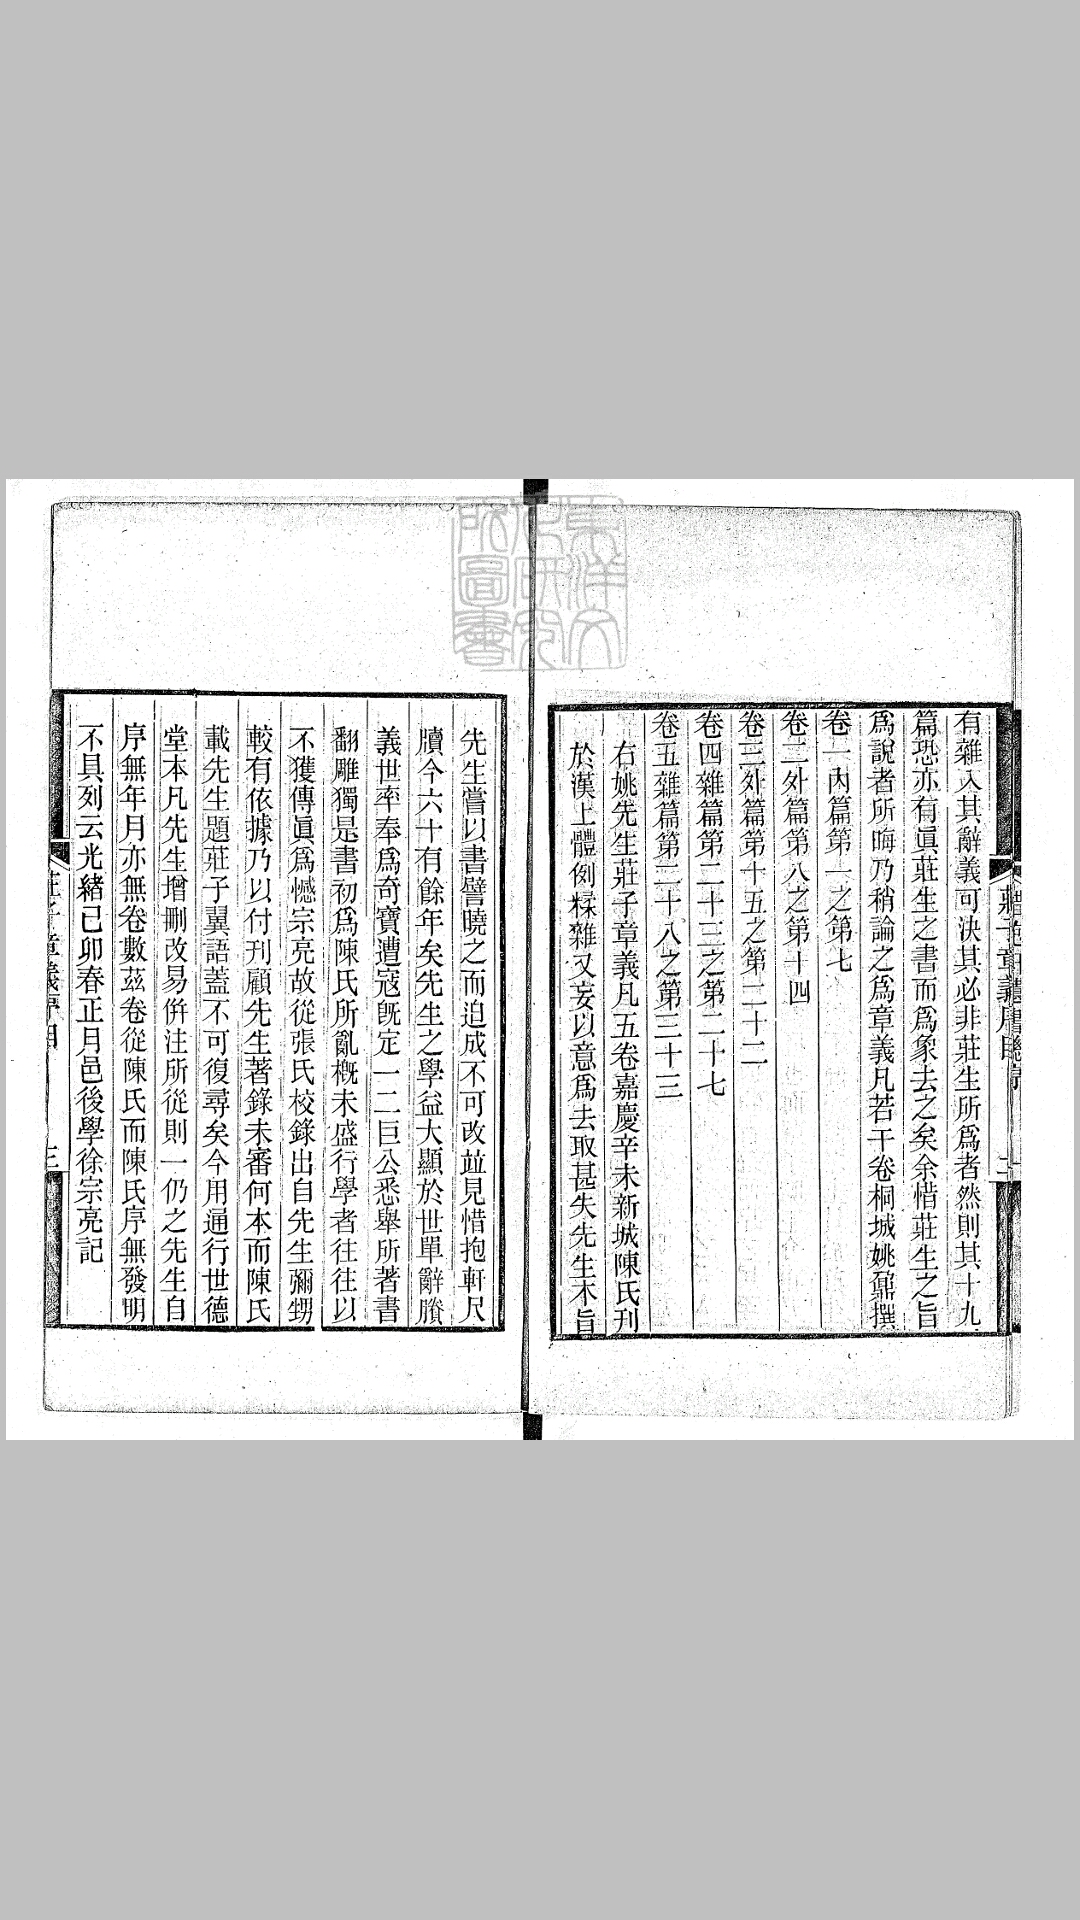 有雜入其辭義可決其必非莊生所爲者然則其十九
篇恐亦有眞莊生之書而爲象去之矣余惜莊生之旨
爲說者所晦乃稍論之爲章義凡若干卷桐城姚鼐撰
卷一內篇第一之第七
卷二外篇第八之第十四
卷三外篇第十五之第二十二
卷四雜篇第二十三之第二十七
卷五雜篇第二十八之第三十三
右姚先生莊子章義凡五卷嘉慶辛未新城陳氏刊
於漢上體例糅雜又妄以意爲去取甚失先生本旨
先生嘗以書譬曉之而迫成不可改竝見惜抱軒尺
牘今六十有餘年矣先生之學益大顯於世單辭賸
義世率奉爲奇寶遭寇旣定一二巨公悉舉所著書
翻雕獨是書初爲陳氏所亂槪未盛行學者往往以
不獲傳眞爲憾宗亮故從張氏校錄出自先生彌甥
較有依據乃以付刊顧先生著錄未審何本而陳氏
載先生題莊子翼語蓋不可復尋矣今用通行世德
堂本凡先生增刪改易倂注所從則一仍之先生自
序無年月亦無卷數茲卷從陳氏而陳氏序無發明
不具列云光緖己卯春正月邑後學徐宗亮記
莊子章義序目
三
東洋文化研究所圖書